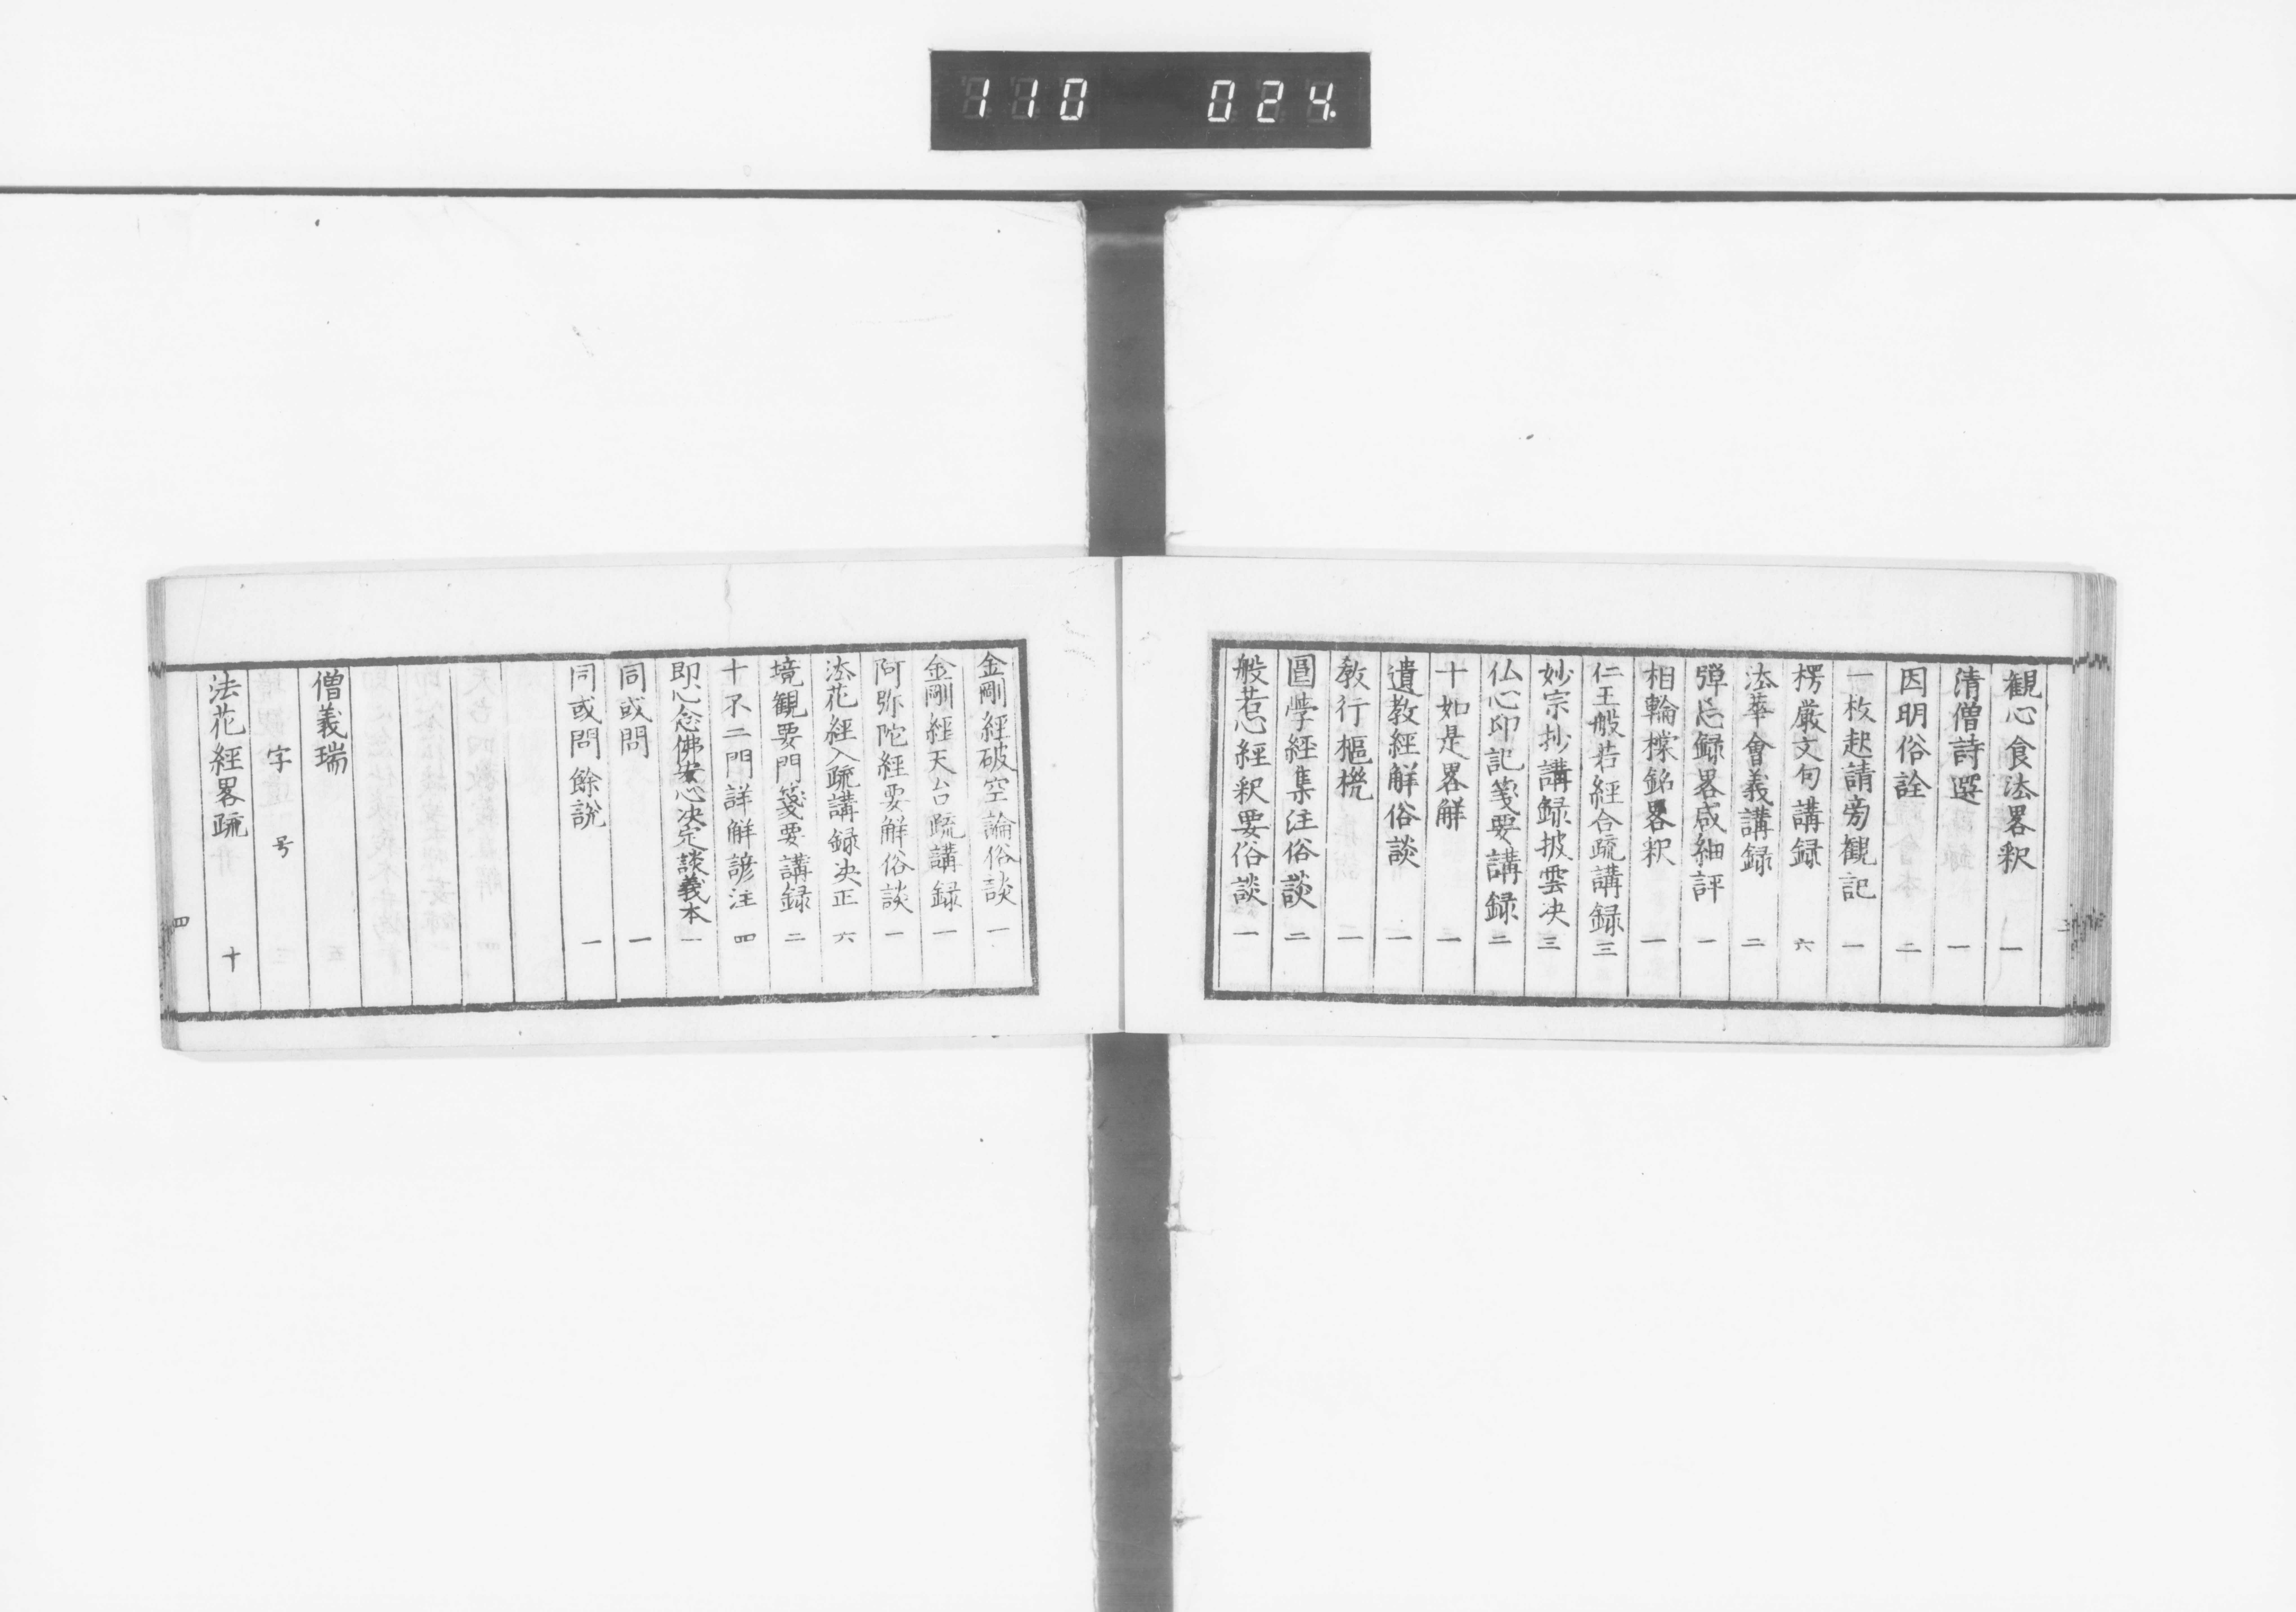 110 024
観心食法畧釈 一
清僧詩選 一
因明俗詮 二
一枚起請旁観記 一
楞厳文句講録 六
法華會義講録 二
弾忘録畧咸細評 一
相輪樘銘畧釈 一
仁王般若經合疏講録 三
妙宗抄講録披雲决 三
仏心印記箋要講録 二
十如是畧解 一
遺教經解俗談 一
教行樞機 二
圓覺經集注俗談 二
般若心經釈要俗談 一
金剛經破空論俗談 一
金剛經天台疏講録 一
阿弥陀經要解俗談 一
法花經入疏講録决正 六
境観要門箋要講録 二
十不二門詳解諺注 四
即心念佛安心决定談義本 一
同或問 一
同或問餘説 一
僧義瑞
字 号
法花經畧疏 十
四